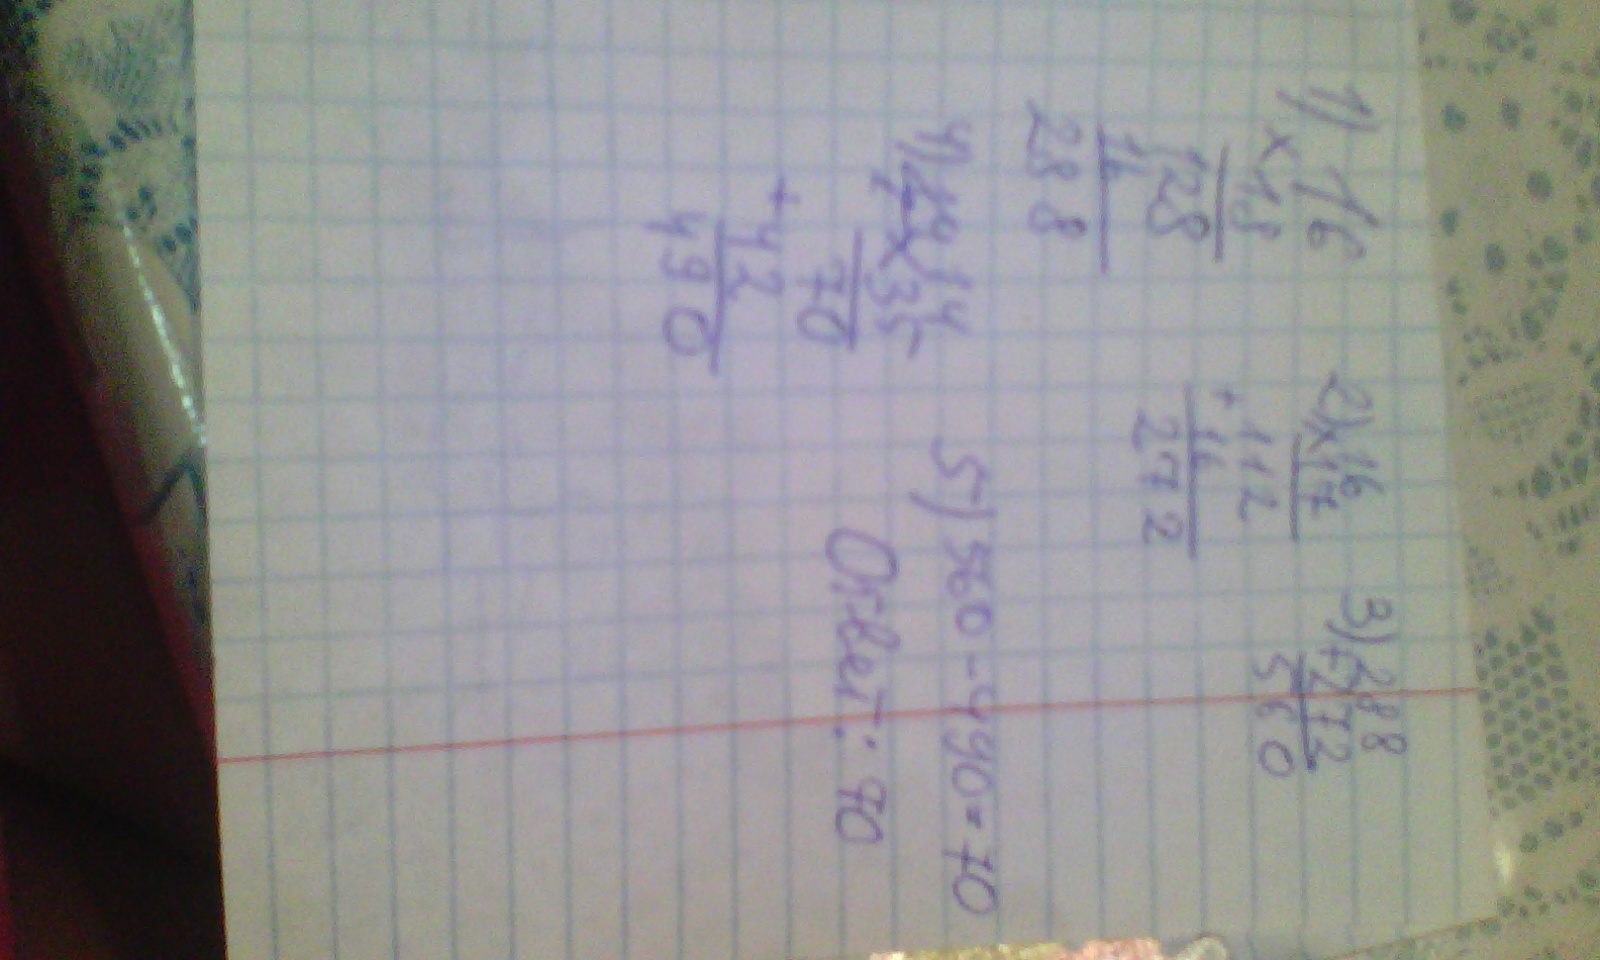 1) 16
× 18
128
16
288
2) × 16
17
112
+ 16
272
3) 288
+ 272
560
4) 14
× 35
70
+ 42
490
5) 560 - 490 = 70
Ответ: 70